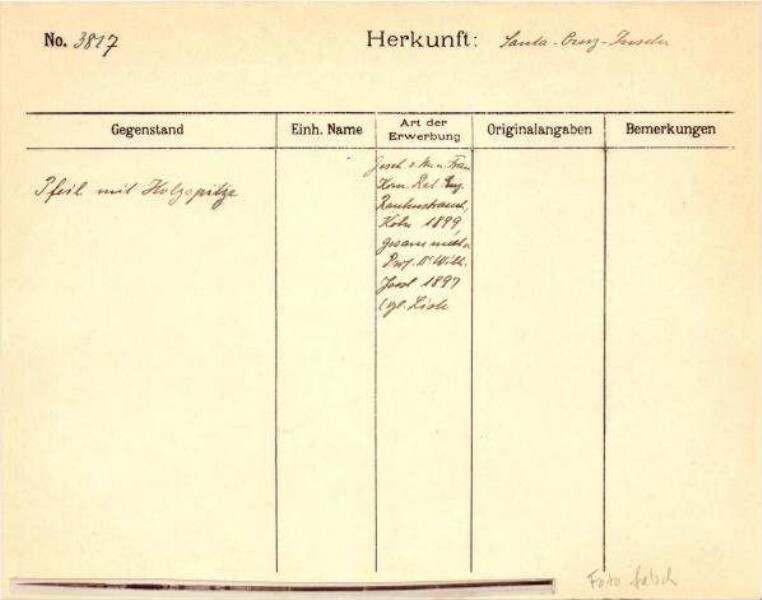 No. 3817
Herkunft: Santa-Cruz-Inseln
Gegenstand
Einh. Name
Art der Erwerbung
Originalangaben
Bemerkungen
Pfeil mit Holzspitze
Gesch. v. Hrn. u. Frau
Kom. Rat Eug.
Rautenstrauch,
Köln 1899,
gesammelt v.
Prof. Dr Wilh.
Joest 1897
(vgl. Liste
Foto falsch